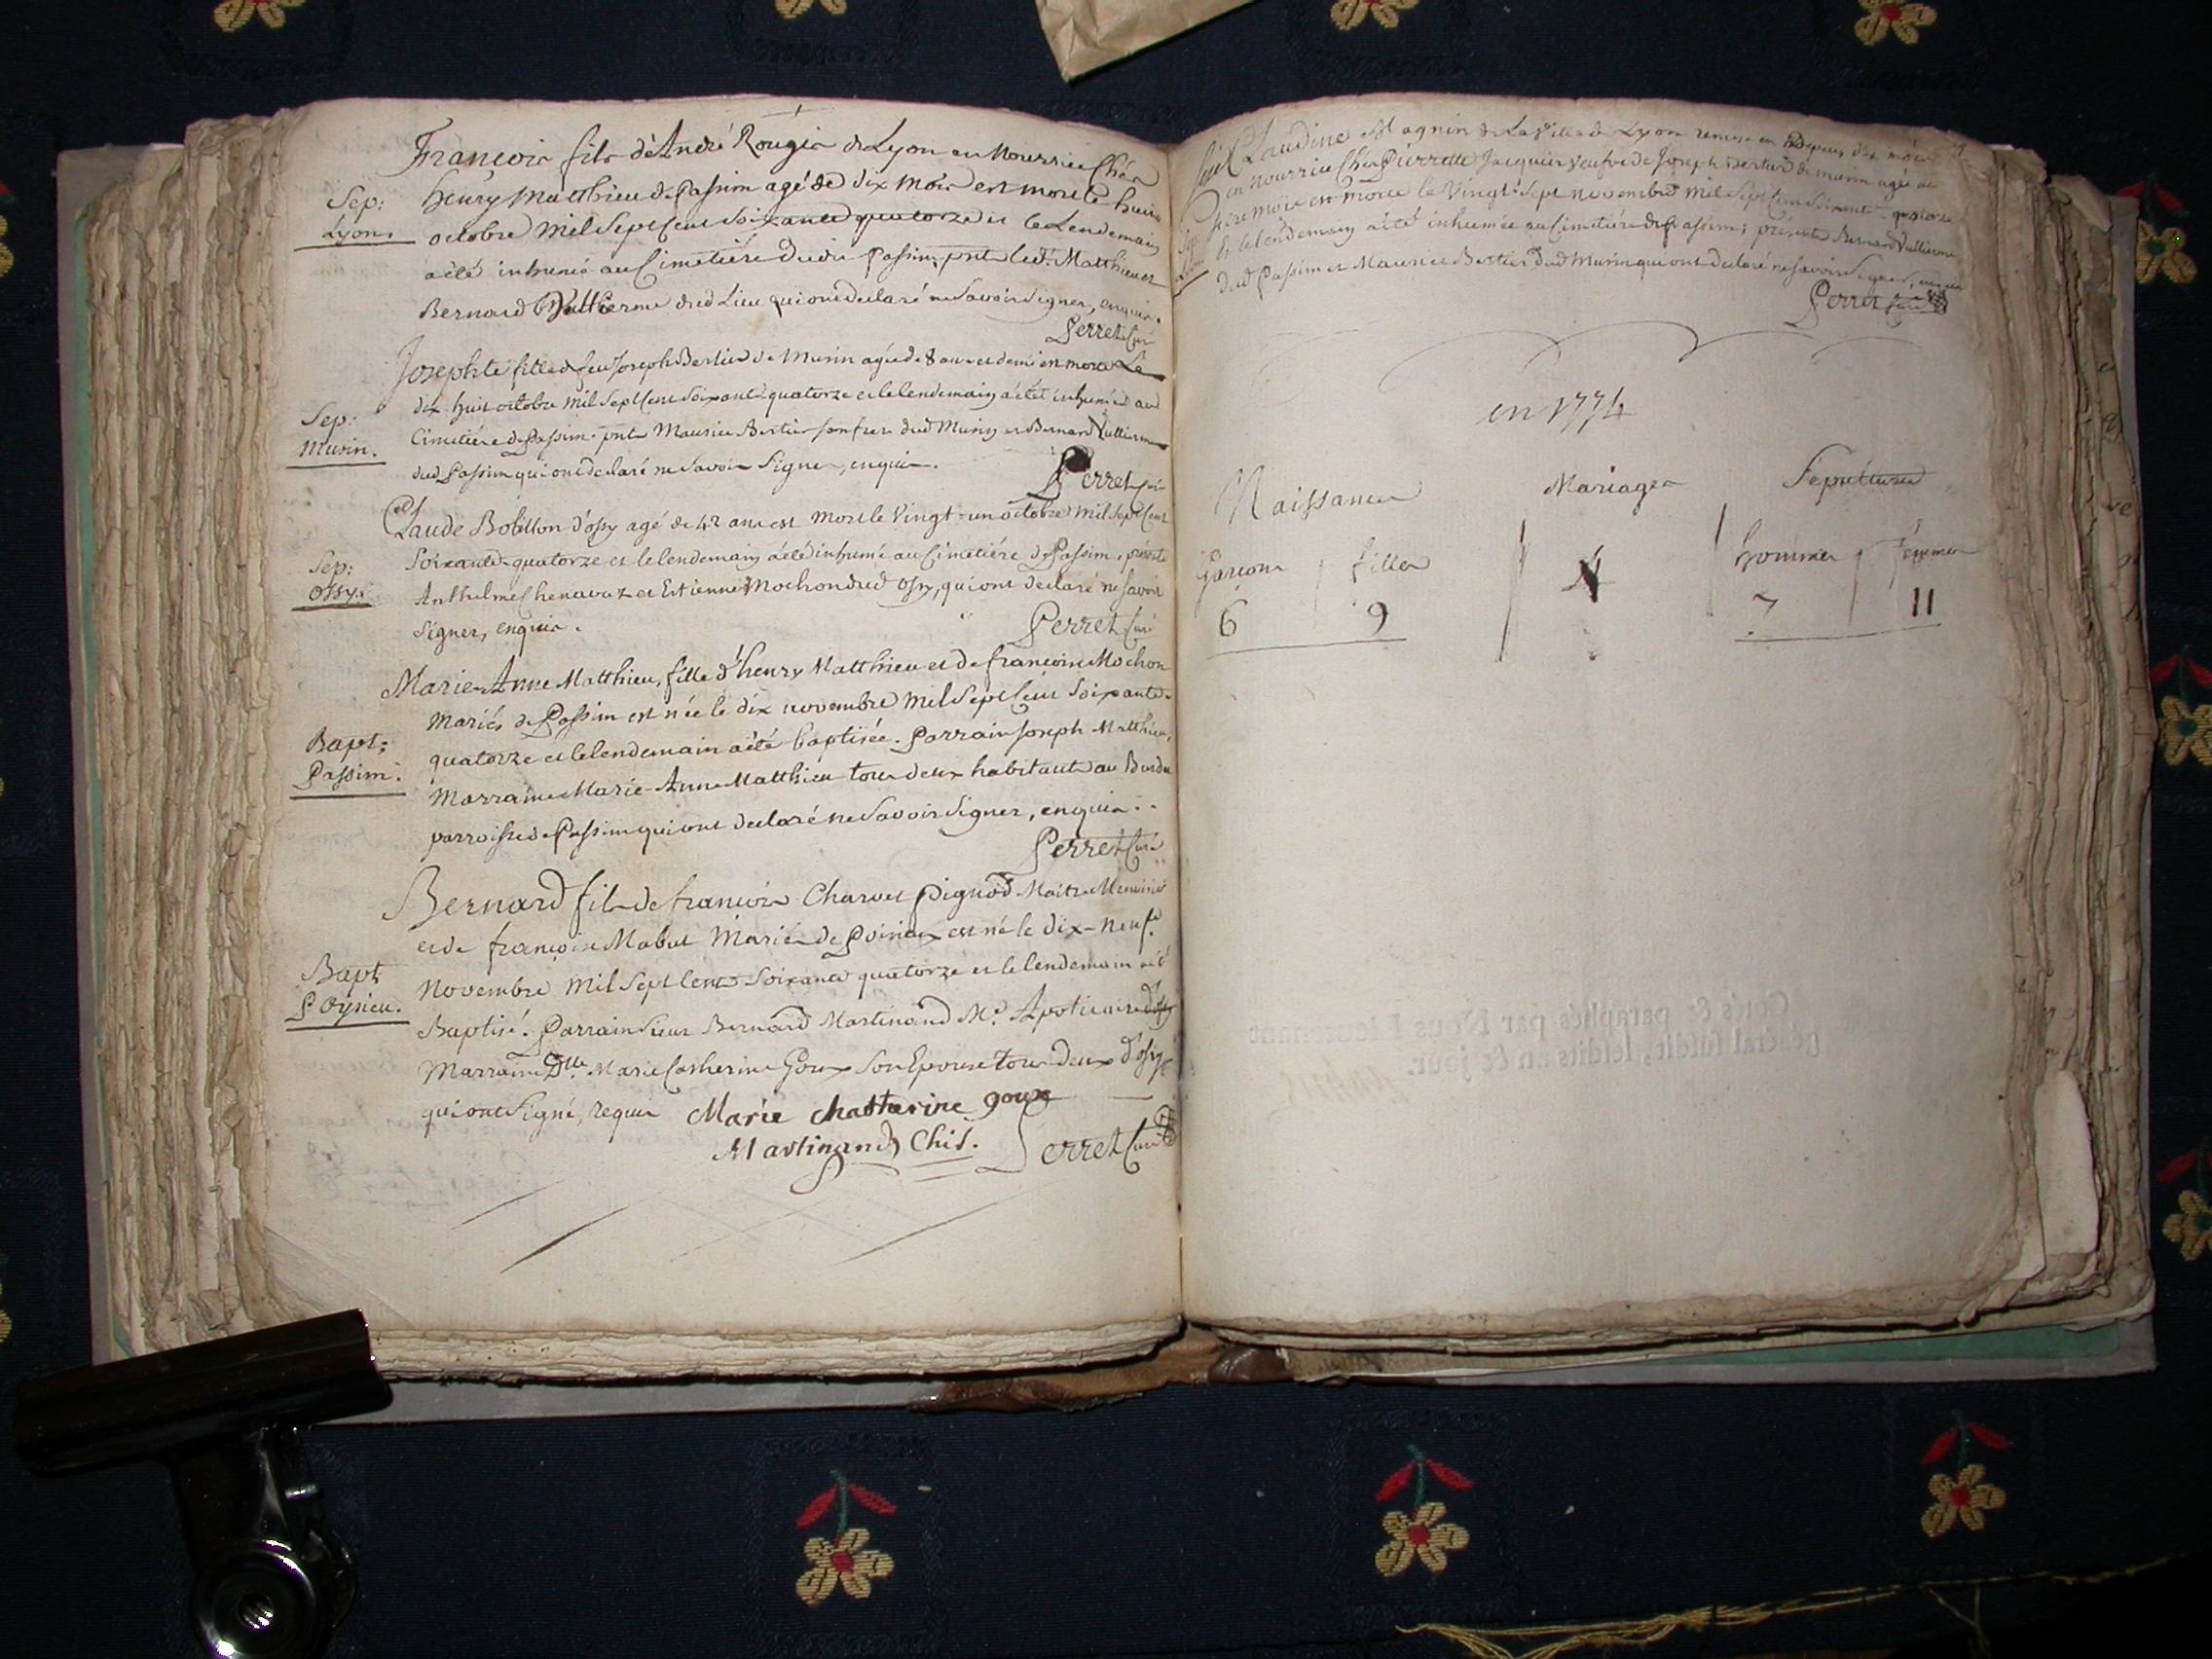 François fils d'André Rougier de Lyon en Nourrice Chés
Sep: Lyon.
henry Matthieu de Passim agé de dix mois est mort le huit
octobre mil Sept Cent Soixante quatorze et le Lendemain
a été inhumé au Cimetiére dudit Passim, pnts led. Matthieu et
Bernard Vullierme dud Lieu qui ont declaré ne Savoir Signer, enquis.
Perret Curé
Josephte fille de feu Joseph Bertier de Murin agée de 8 ans et demi est morte Le
Sep: Murin.
dix huit octobre mil Sept Cent Soixante quatorze et le lendemain a été inhumée au
Cimetiére de Passim. pnts Maurice Bertier son frere dud Murin et Bernard Vullierme
dud Passim qui ont declaré ne Savoir Signer, enquis.
Perret Curé
Claude Bobillon d'ossy agé de 42 ans est mort le Vingt-un octobre mil Sept Cent
Sep: Ossy.
Soixante-quatorze et le lendemain a été inhumé au Cimetiére de Passim, présents
Anthelme Chenavaz et Estienne Mochon dud Ossy, qui ont declaré ne Savoir
Signer, enquis.
Perret Curé
Marie-Anne Matthieu, fille d'henry Matthieu et de françoise Mochon
Mariés de Passim est née le dix novembre mil Sept Cent Soixante-
Bapt: Passim.
quatorze et le lendemain a été baptisée. Parrain Joseph Matthieu,
Marraine Marie-Anne Matthieu tous deux habitants au
parroisse de Passim qui ont declaré ne Savoir Signer, enquis..
Perret Curé
Bernard fils de françois Charvet Pignod Maitre
et de françoise Mabut Mariés de Poirieux est né le dix-neuf
Bapt Poysieu.
Novembre mil Sept Cent Soixante quatorze et le lendemain a été
Baptisé. Parrain Sieur Bernard Martinand Me. Apoticaire
Marraine Dlle. Marie Catherine Goux Son Epouse tous deux d'ossy
qui ont Signé, requis Marie Chattarine goux
Martinand Chir. Perret Curé
Claudine Magnin de La Ville de Lyon remise en depuis dix mois
en nourrice Chés Pierrette Jacquier veufve de Joseph Bertier de murin agée de
mois est morte le Vingt-Sept novembre mil Sept Cent Soixante-quatorze
Sep: Lyon
Et le lendemain a été inhumée au Cimetiére de Passim; présents Bernard Vullierme
dud Passim et Maurice Bertier dud Murin qui ont declaré ne Savoir Signer, enquis
Perret Curé
en 1774
Naissances Mariages Sépultures
Garçons filles 4 hommes femmes
6 9 7 11